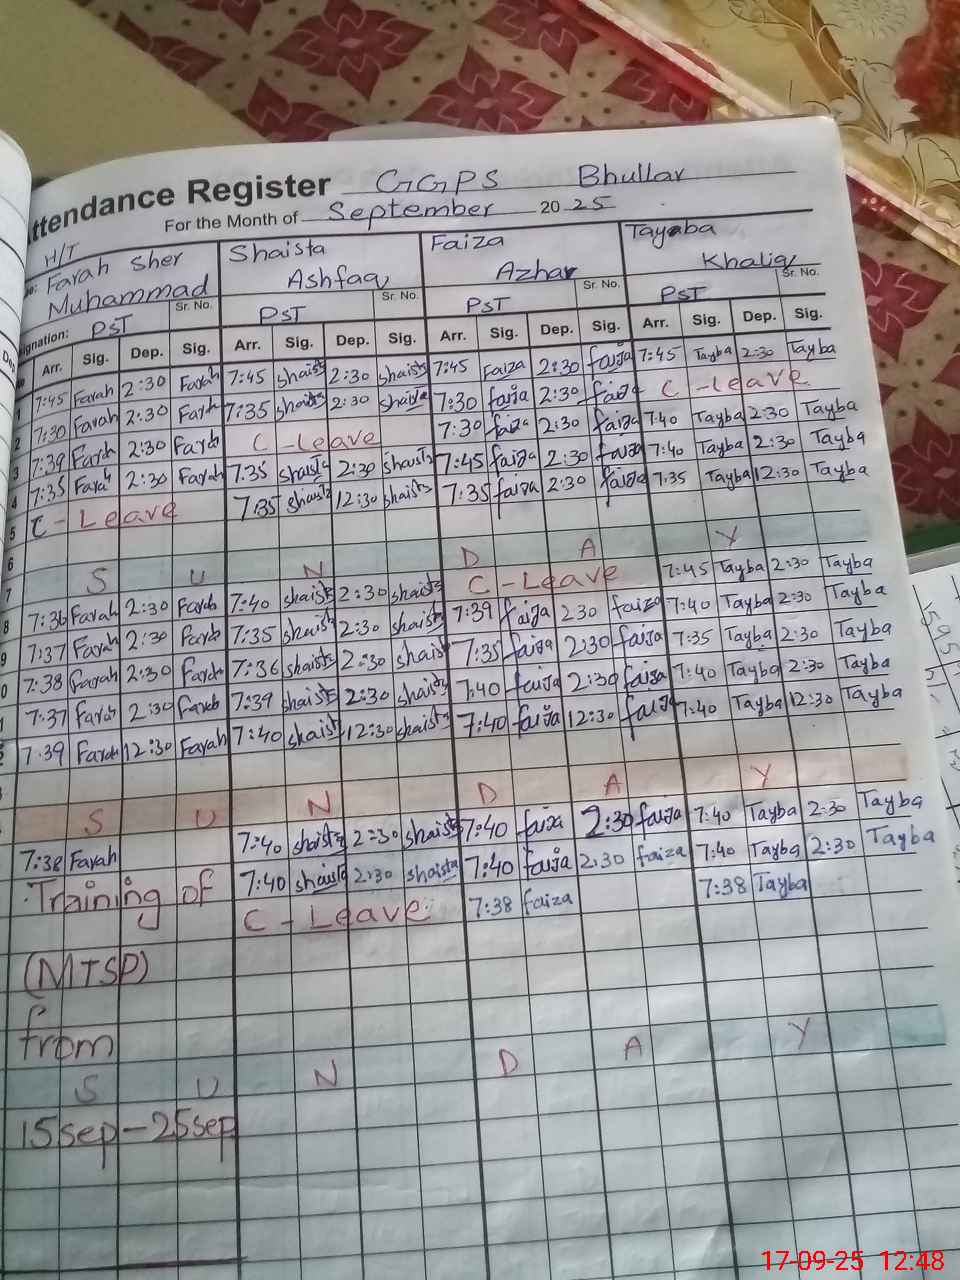 ttendance Register GGPS Bhullar
For the Month of September 20 25
H/T
Farah Sher Muhammad
Shaista Ashfaq
Faiza Azhar
Tayaba Khaliq
Sr. No. Sr. No. Sr. No. Sr. No.
ignation: PST PST PST PST
Arr. Sig. Dep. Sig. Arr. Sig. Dep. Sig. Arr. Sig. Dep. Sig. Arr. Sig. Dep. Sig.
1 7:45 Farah 2:30 Farah 7:45 shaista 2:30 shaista 7:45 Faiza 2:30 faiza 7:45 Tayba 2:30 Tayba
2 7:30 Farah 2:30 Farah 7:35 shaista 2:30 shaista 7:30 faiza 2:30 faiza C - Leave
3 7:39 Farah 2:30 Farah C - Leave 7:30 faiza 2:30 faiza 7:40 Tayba 2:30 Tayba
4 7:35 Farah 2:30 Farah 7:35 shaista 2:30 shaista 7:45 faiza 2:30 faiza 7:40 Tayba 2:30 Tayba
5 C - Leave 7:35 shaista 12:30 shaista 7:35 faiza 2:30 faiza 7:35 Tayba 12:30 Tayba
6
7 S U N D A Y
8 7:36 Farah 2:30 Farah 7:40 shaista 2:30 shaista C - Leave 7:45 Tayba 2:30 Tayba
9 7:37 Farah 2:30 Farah 7:35 shaista 2:30 shaista 7:39 faiza 2:30 faiza 7:40 Tayba 2:30 Tayba
0 7:38 Farah 2:30 Farah 7:36 shaista 2:30 shaista 7:35 faiza 2:30 faiza 7:35 Tayba 2:30 Tayba
1 7:37 Farah 2:30 Farah 7:39 shaista 2:30 shaista 7:40 faiza 2:30 faiza 7:40 Tayba 2:30 Tayba
2 7:39 Farah 12:30 Farah 7:40 shaista 12:30 shaista 7:40 faiza 12:30 faiza 7:40 Tayba 12:30 Tayba
S U N D A Y
7:38 Farah 7:40 shaista 2:30 shaista 7:40 faiza 2:30 faiza 7:40 Tayba 2:30 Tayba
Training of 7:40 shaista 2:30 shaista 7:40 faiza 2:30 faiza 7:40 Tayba 2:30 Tayba
C - Leave 7:38 faiza 7:38 Tayba
(MTSP)
from
S U N D A Y
15 sep - 25 sep
17-09-25 12:48